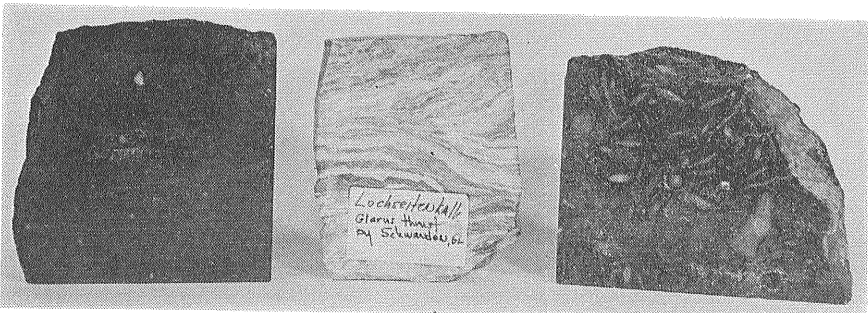 Lochseitenkalk
Glarus thrust
by Schwanden, GL